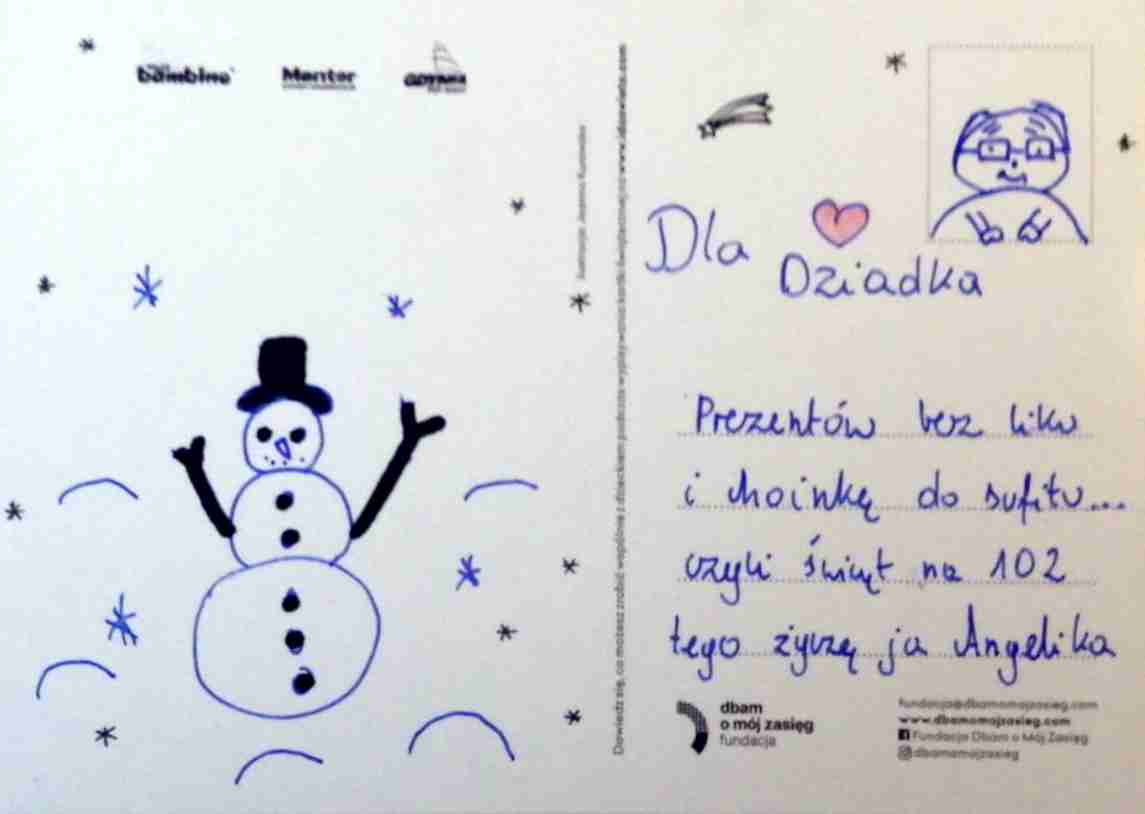 bambino
Mentor
GDYNIA
Dla
Dziadka
Prezentów bez liku
i choinkę do sufitu...
czyli świąt na 102
tego życzę ja Angelika
dbam
o mój zasięg
fundacja
fundacja@dbamomojzasieg.com
www.dbamomojzasieg.com
Fundacja Dbam o Mój Zasięg
dbamomojzasieg
Dowiedz się, co możesz zrobić wspólnie z dzieckiem podczas